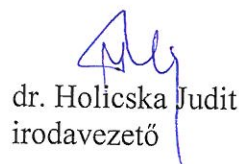 dr. Holicska Judit
irodavezető